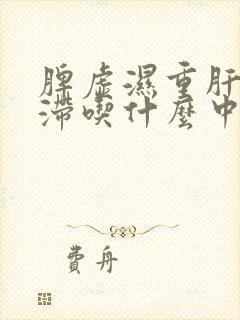 脾虚濕重肝
滯喫什麼中
費舟